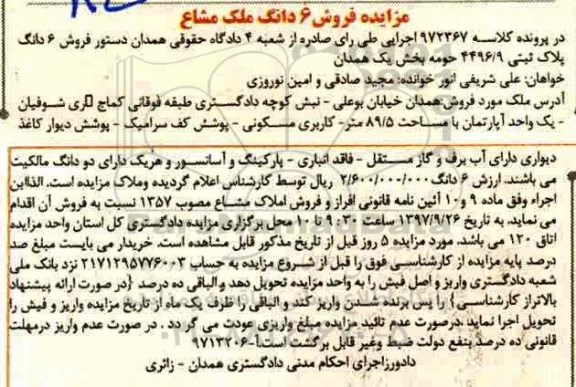 مزایده فروش ۶ دانگ ملک مشاع
در پرونده کلاسه ۹۷۲۳۶۷ اجرایی طی رای صادره از شعبه ۴ دادگاه حقوقی همدان دستور فروش ۶ دانگ
پلاک ثبتی ۴۴۹۶/۹ حومه بخش یک همدان
خواهان: علی شریفی انور خوانده: مجید صادقی و امین نوروزی
آدرس ملک مورد فروش: همدان خیابان بوعلی - نبش کوچه دادگستری طبقه فوقانی کماج شوفیان
- یک واحد آپارتمان با مساحت ۸۹/۵ متر - کاربری مسکونی - پوشش کف سرامیک - پوشش دیوار کاغذ
دیواری دارای آب برف و گاز مستقل - فاقد انباری - پارکینگ و آسانسور و هریک دارای دو دانگ مالکیت
می باشند. ارزش ۶ دانگ ۲/۶۰۰/۰۰۰/۰۰۰ ریال توسط کارشناس اعلام گردیده وملاک مزایده است. الذااین
اجراء وفق ماده ۹ و ۱۰ آئین نامه قانونی افراز و فروش املاک مشاع مصوب ۱۳۵۷ نسبت به فروش آن اقدام
می نماید. به تاریخ ۱۳۹۷/۹/۲۶ ساعت ۹:۳۰ تا ۱۰ محل برگزاری مزایده دادگستری کل استان واحد مزایده
اتاق ۱۲۰ می باشد. مورد مزایده ۵ روز قبل از تاریخ مذکور قابل مشاهده است. خریدار می بایست مبلغ صد
درصد پایه مزایده از کارشناسی فوق را قبل از شروع مزایده به حساب ۲۱۷۱۲۹۵۷۷۶۰۰۳ نزد بانک ملی
شعبه دادگستری واریز و اصل فیش را به واحد مزایده تحویل دهد و الباقی ده درصد {در صورت ارائه پیشنهاد
بالاتراز کارشناسی} را پس برنده شدن واریز کند و الباقی را ظرف یک ماه از تاریخ مزایده واریز و فیش را
تحویل اجرا نماید .درصورت عدم تائید مزایده مبلغ واریزی عودت می گر دد . در صورت عدم واریز درمهلت
قانونی ده درصد بنفع دولت ضبط وغیر قابل برگشت است.آ-۹۷۱۳۲۰۶
دادورزاجرای احکام مدنی دادگستری همدان - زائری